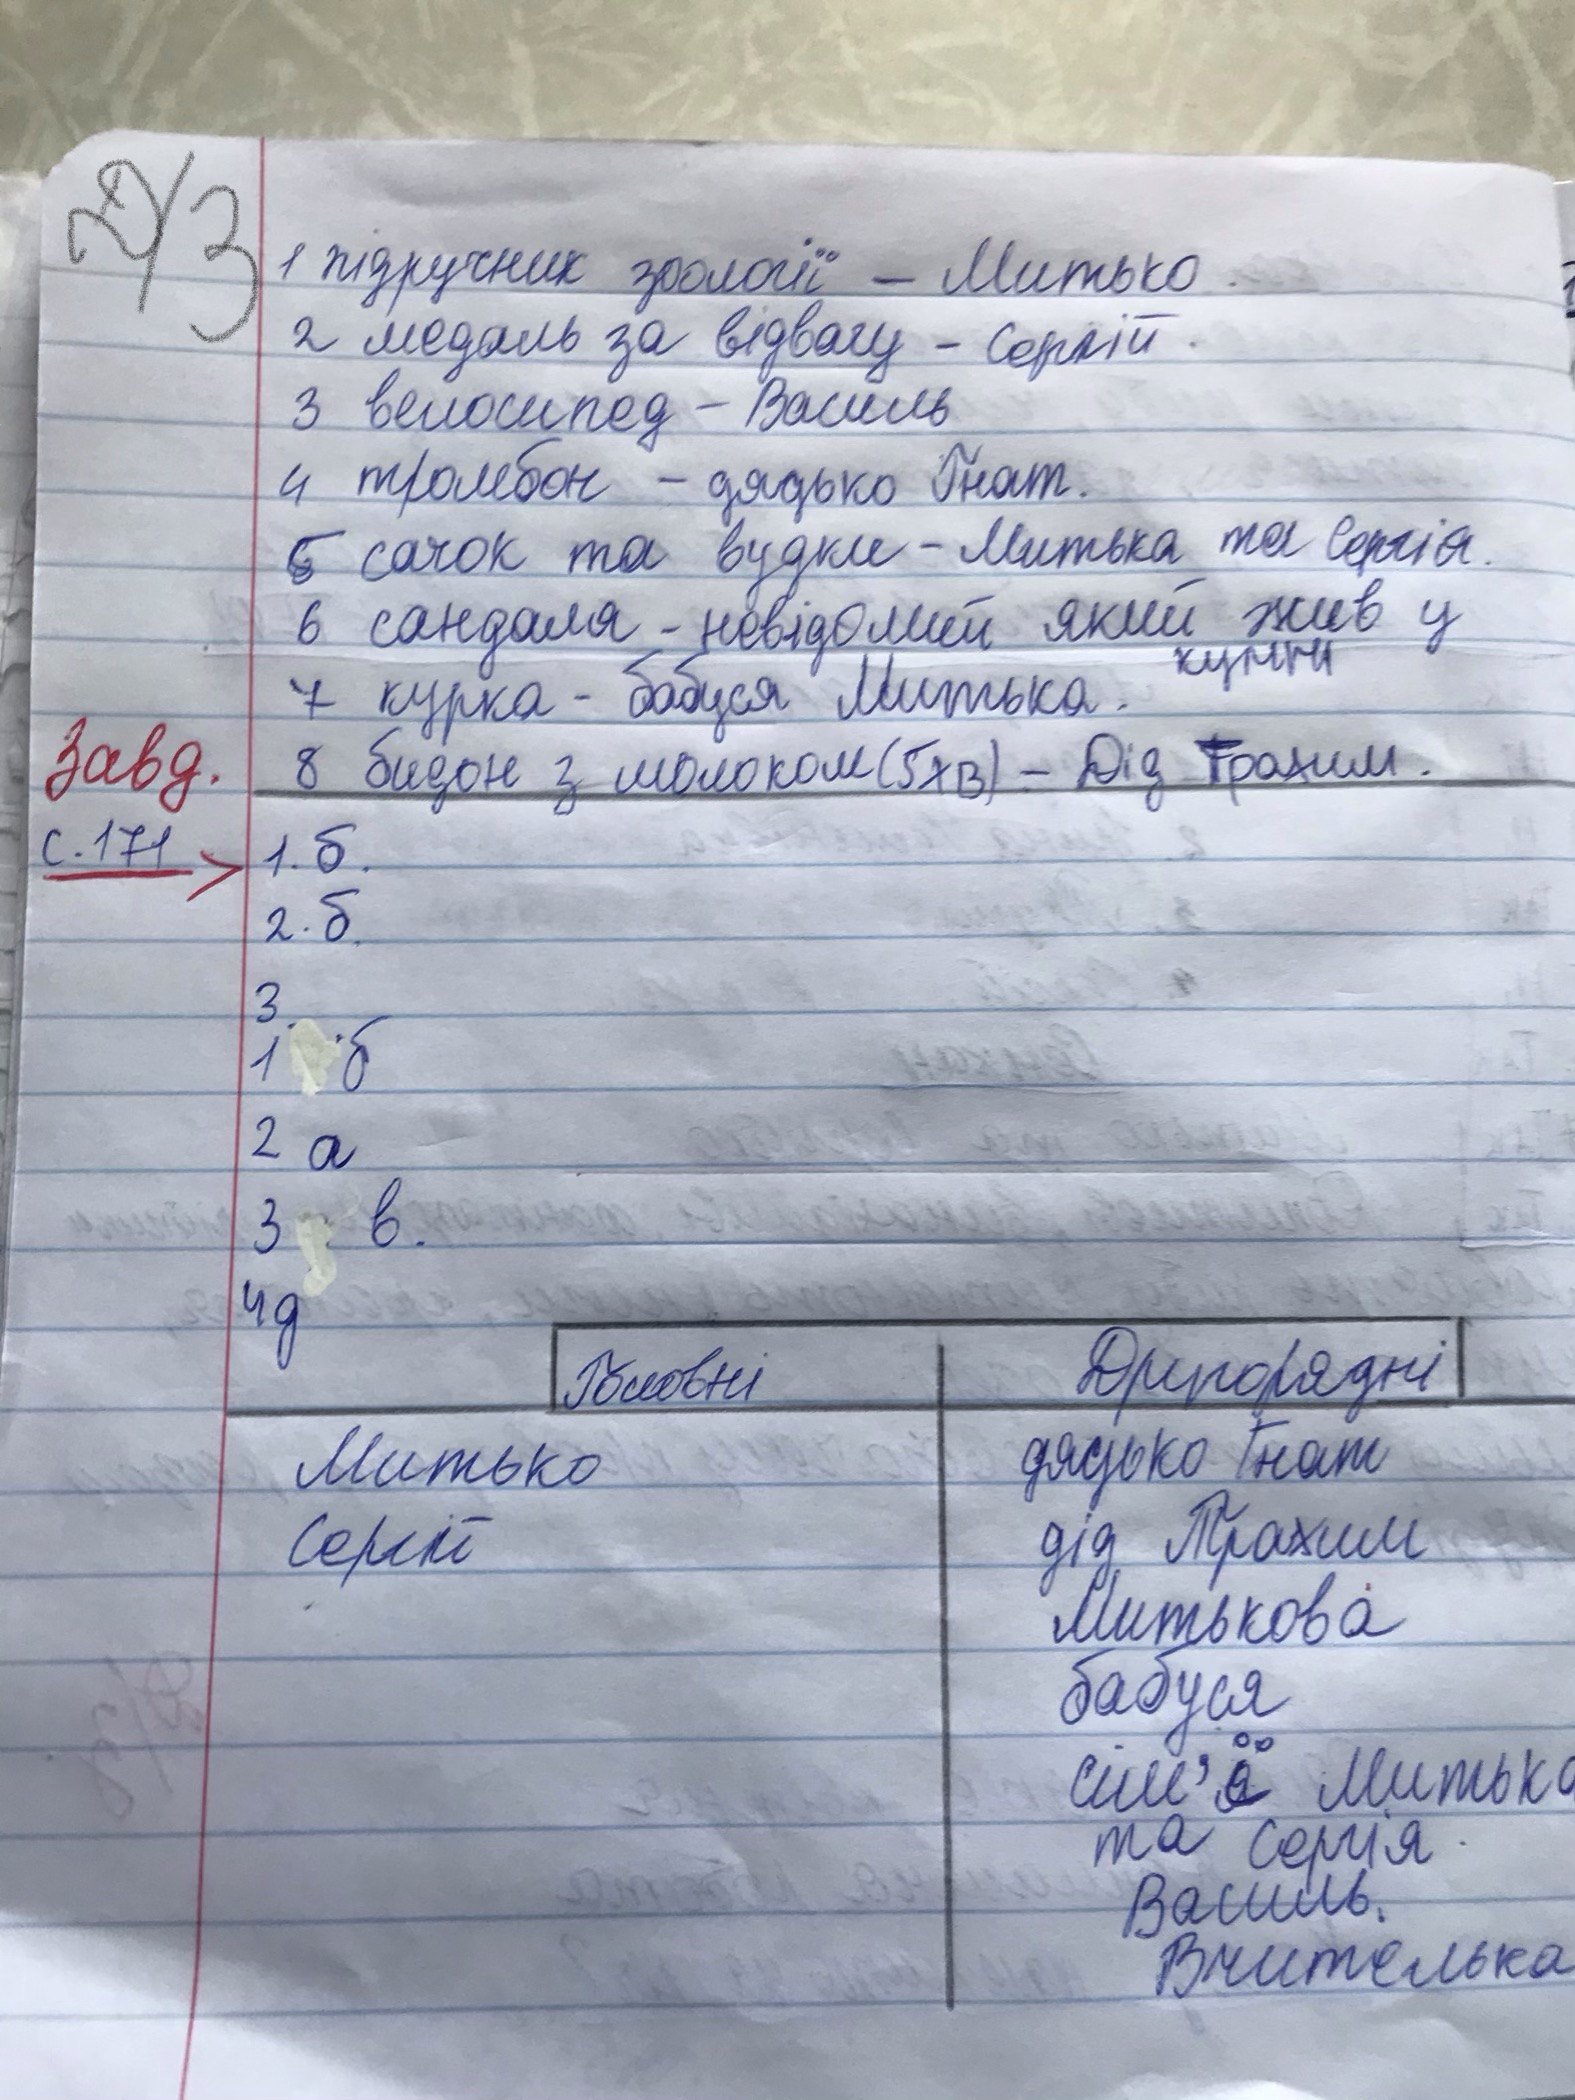 Д/З
1 підручник зоології – Митько.
2 медаль за відвагу – Сергій.
3 велосипед – Василь
4 тромбон – дядько Гнат.
5 сачок та вудки – Митька та Сергія.
6 сандаля – невідомий який жив у
7 курка – бабуся Митька.
Завд. 8 бидон з молоком (5хв) – Дід Трохим.
с. 171 1. б.
2. б.
3.
1 б
2 а
3 в.
4 д
Головні Другорядні
Митько дядько Гнат
Сергій дід Трохим
Митькова
бабуся
сім'ї Митька
та Сергія.
Василь.
Вчителька